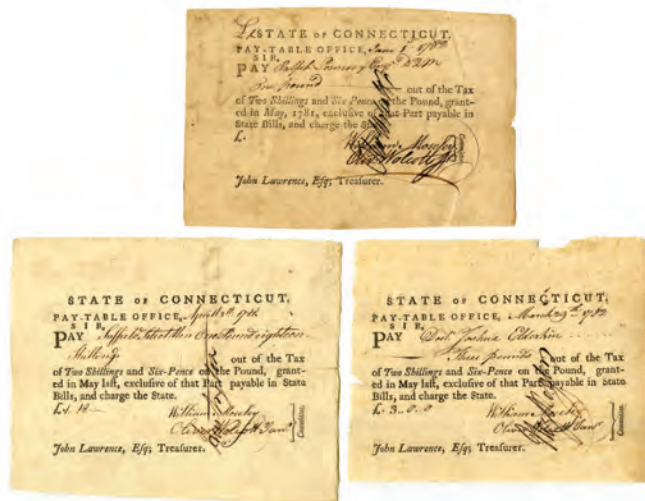 STATE OF CONNECTICUT.
PAY-TABLE OFFICE, June 1st 1782
SIR,
PAY Ralph Pomeroy Esqr D.Q.M
One pound out of the Tax
of Two Shillings and Six Pence on the Pound, grant-
ed in May, 1781, exclusive of that Part payable in
State Bills, and charge the State.
£.
William Moseley
Oliv Wolcott Jr
Committee.
John Lawrence, Esq; Treasurer.
STATE OF CONNECTICUT.
PAY-TABLE OFFICE, April 1782
SIR,
PAY Suffield Select Men One Pound eighteen
Shillings out of the Tax
of Two Shillings and Six-Pence on the Pound, grant-
ed in May last, exclusive of that Part payable in State
Bills, and charge the State.
£1.18
William Moseley
Oliver Wolcott Junr
Committee.
John Lawrence, Esq; Treasurer.
STATE OF CONNECTICUT.
PAY-TABLE OFFICE, March 29th 1782
SIR,
PAY Doct Joshua Elderkin
Three pounds out of the Tax
of Two Shillings and Six-Pence on the Pound, grant-
ed in May last, exclusive of that Part payable in State
Bills, and charge the State.
£.3-0-0
William Moseley
Oliver Wolcott Junr
Committee.
John Lawrence, Esq; Treasurer.